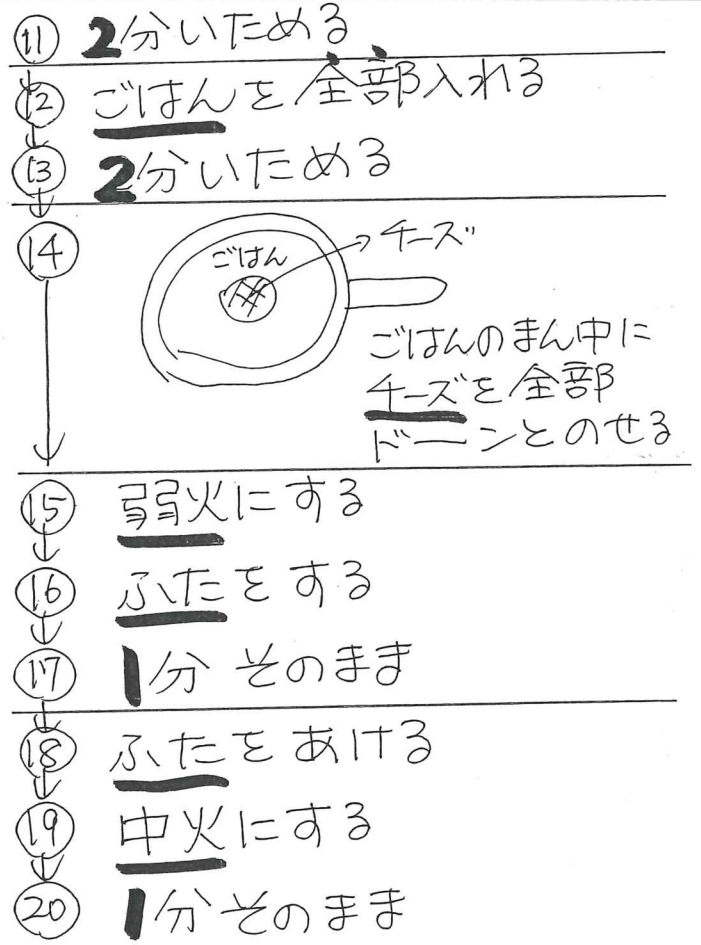 ⑪ 2分いためる
⑫ ごはんを全部入れる
⑬ 2分いためる
⑭
ごはん
チーズ
ごはんのまん中に
チーズを全部
ドーンとのせる
⑮ 弱火にする
⑯ ふたをする
⑰ 1分そのまま
⑱ ふたをあける
⑲ 中火にする
⑳ 1分そのまま